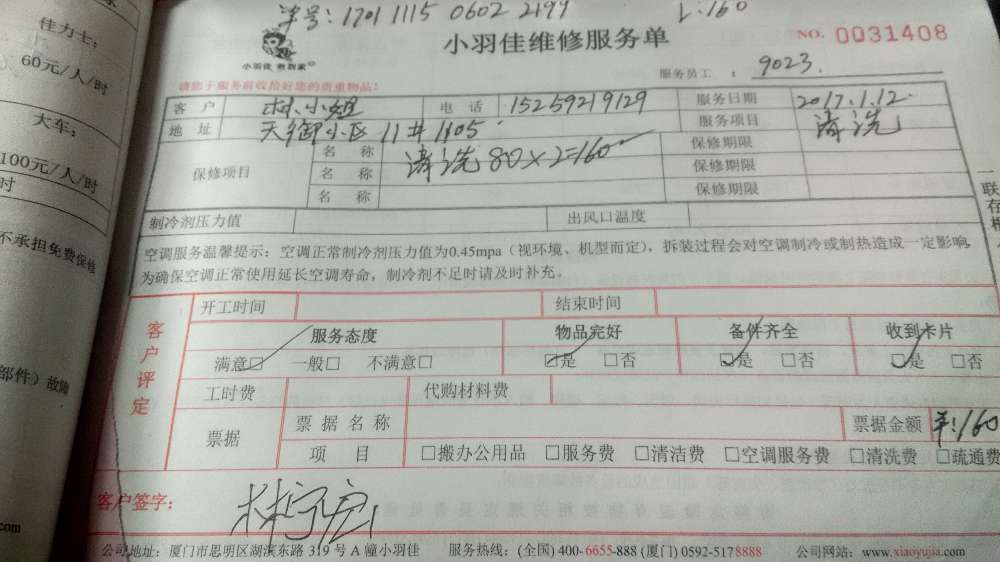 佳力士：
60元/人/时
大车：
100元/人/时
时
不承担免费保修
部件）故障
com
单号：1701 1115 0602 2199
1：160
小羽佳 帮到家
小羽佳维修服务单
NO. 0031408
服务员工 ： 9023.
请您于服务前收拾好您的贵重物品！
客 户 林小姐 电 话 15259219129 服务日期 2017.1.12.
地 址 天御小区 11# 1105 服务项目 清洗
保修项目
名 称 清洗 80×2=160 保修期限
名 称 保修期限
名 称 保修期限
制冷剂压力值 出风口温度
一联存根
空调服务温馨提示：空调正常制冷剂压力值为0.45mpa（视环境、机型而定），拆装过程会对空调制冷或制热造成一定影响，
为确保空调正常使用延长空调寿命，制冷剂不足时请及时补充。
客户评定
开工时间 结束时间
服务态度 物品完好 备件齐全 收到卡片
满意□ 一般□ 不满意□ ☑是 □否 ☑是 □否 ☑是 □否
工时费 代购材料费
票据
票 据 名 称 票据金额 ¥：160
项 目 □搬办公用品 □服务费 □清洁费 □空调服务费 □清洗费 □疏通费
客户签字：
公司地址：厦门市思明区湖滨东路 319 号 A 幢小羽佳 服务热线：(全国) 400-6655-888 (厦门) 0592-5178888 公司网站：www.xiaoyujia.com